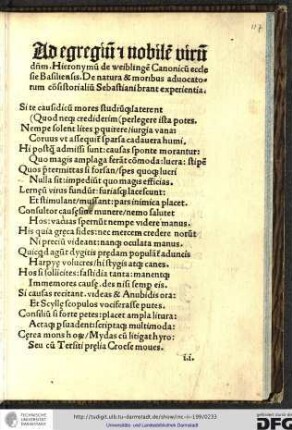 117
Ad egregiū ⁊ nobilē virū
dñm. Hieronymū de weiblingē Canonicū eccle
sie Basilieñsis. De natura & moribus aduocato-
rum cōsistorialiū Sebastiani brant experientia.
Si te causidicū mores studiūq; laterent
(Quod neq; crediderim) perlegere ista potes.
Nempe solent lites pquirere/iurgia vana:
Coruus vt assequit sparsa cadauera humi.
Hi postq̄ admissi sunt: causas sponte morantur:
Quo magis amplaga ferāt cōmoda: lucra: stipē
Quos pꝛermittas si forsan/spes quoq; lucri
Nulla sit: impediūt quo magis efficias.
Lerneū virus fundūt: furiasq; lacescunt:
Et stimulant/mussant: pars inimica placet.
Consultor causessim munere/nemo salutet
Hos: vadias spernūt nempe videre manus.
His quia greca fides: nec mercem credere norūt
Ni preciū videant: nanq; oculata manus.
Quicqd agūt dygitis predam populāt aduncis
Harpyę volucres/hi stygis atq; canes.
Hos si sollicites: fastidia tanta: manentq;
Immemores causę. des nisi semp eis.
Si causas recitant. videas & Anubidis ora:
Et Scyllę scopulos vociferasse putes.
Consiliū si forte petes: placet ampla litura:
Actaq; psuadent scriptaq; multimoda:
Cerea mons hoꝝ/Mydas cū litigat hyro:
Seu cū Tersiti pręlia Croese moues.
TECHNISCHE
UNIVERSITÄT
DARMSTADT
http://tudigit.ulb.tu-darmstadt.de/show/inc-iv-199/0233
Universitäts- und Landesbibliothek Darmstadt
gefördert durch die
DFG